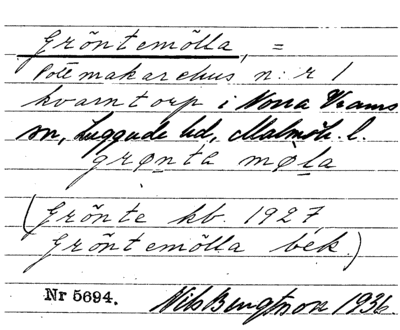 Gröntemölla, =
Pottmakarehus n:r 1
kvarntorp i Norra Vrams
sn, Luggude hd, Malmöh. l.
grønta møla
(Grönte kb. 1927
Gröntemölla bek.)
Nr 5694. Nils Bengtsson 1936.